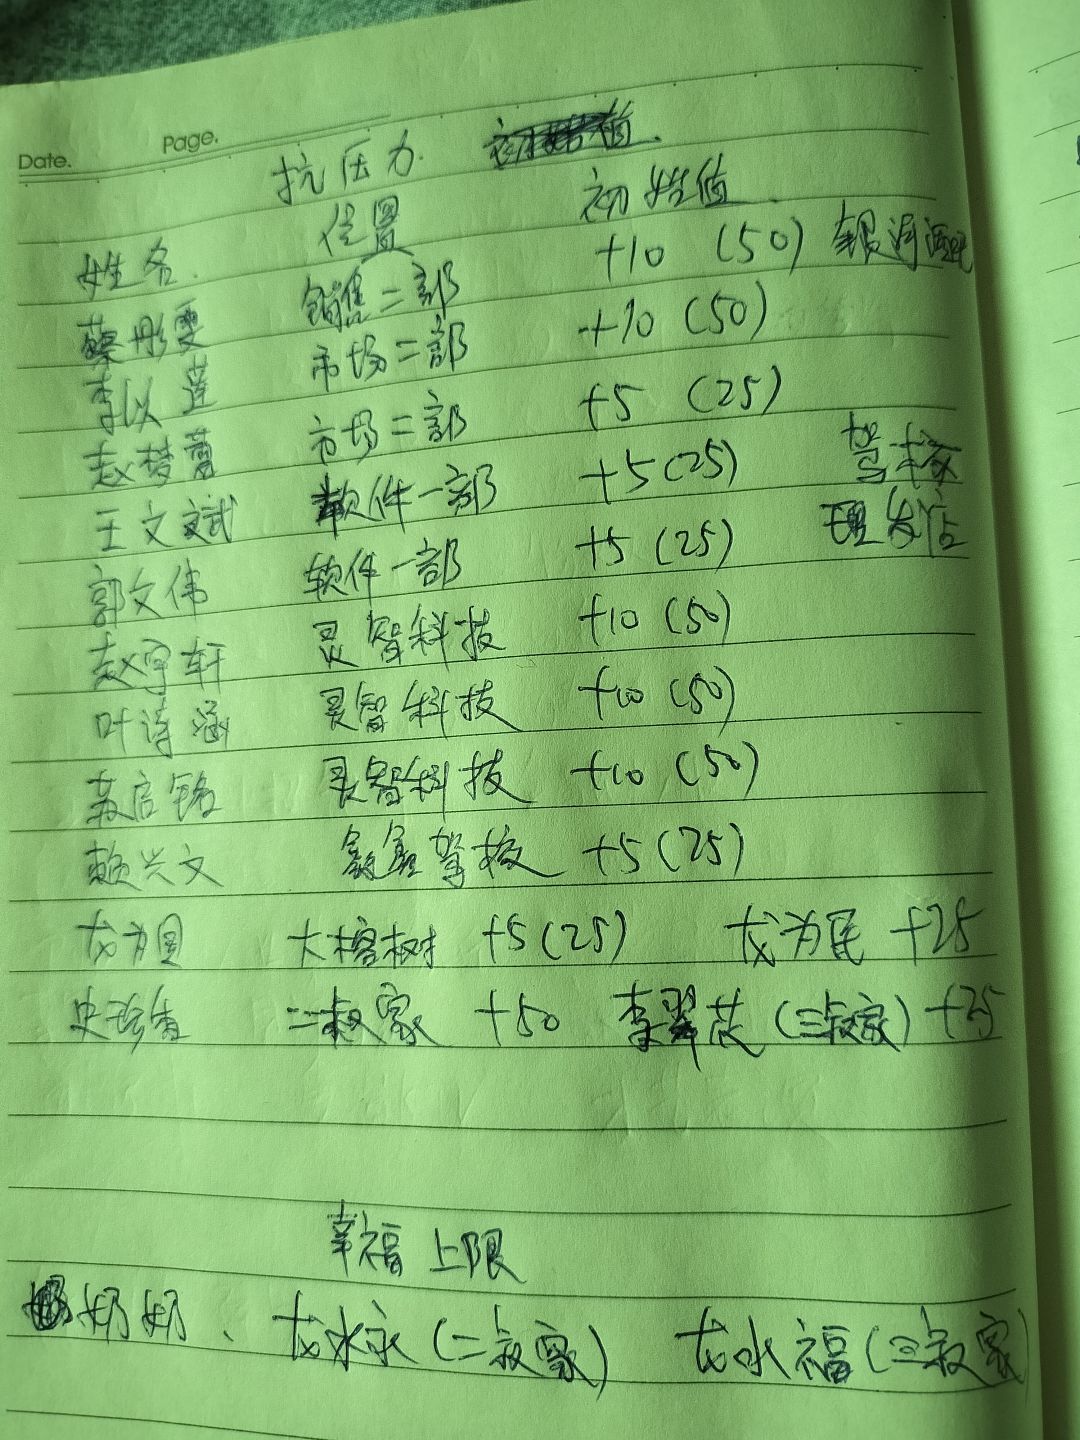 Date. Page.
抗压力.
姓名. 位置 初始值
蔡彤雯 销售二部 +10 (50) 银河酒吧
李以莲 市场二部 +10 (50)
赵梦 市场二部 +5 (25)
王文斌 软件一部 +5 (25) 驾校
郭文伟 软件一部 +5 (25) 理发店
赵宇轩 灵智科技 +10 (50)
叶诗涵 灵智科技 +10 (50)
苏启铭 灵智科技 +10 (50)
赖兴文 鑫鑫驾校 +5 (25)
龙为国 大榕树 +5 (25) 龙为民 +25
史珍香 二叔家 +50 李翠花 (三叔家) +25
幸福上限
奶奶、 龙水永 (二叔家) 龙水福 (三叔家)